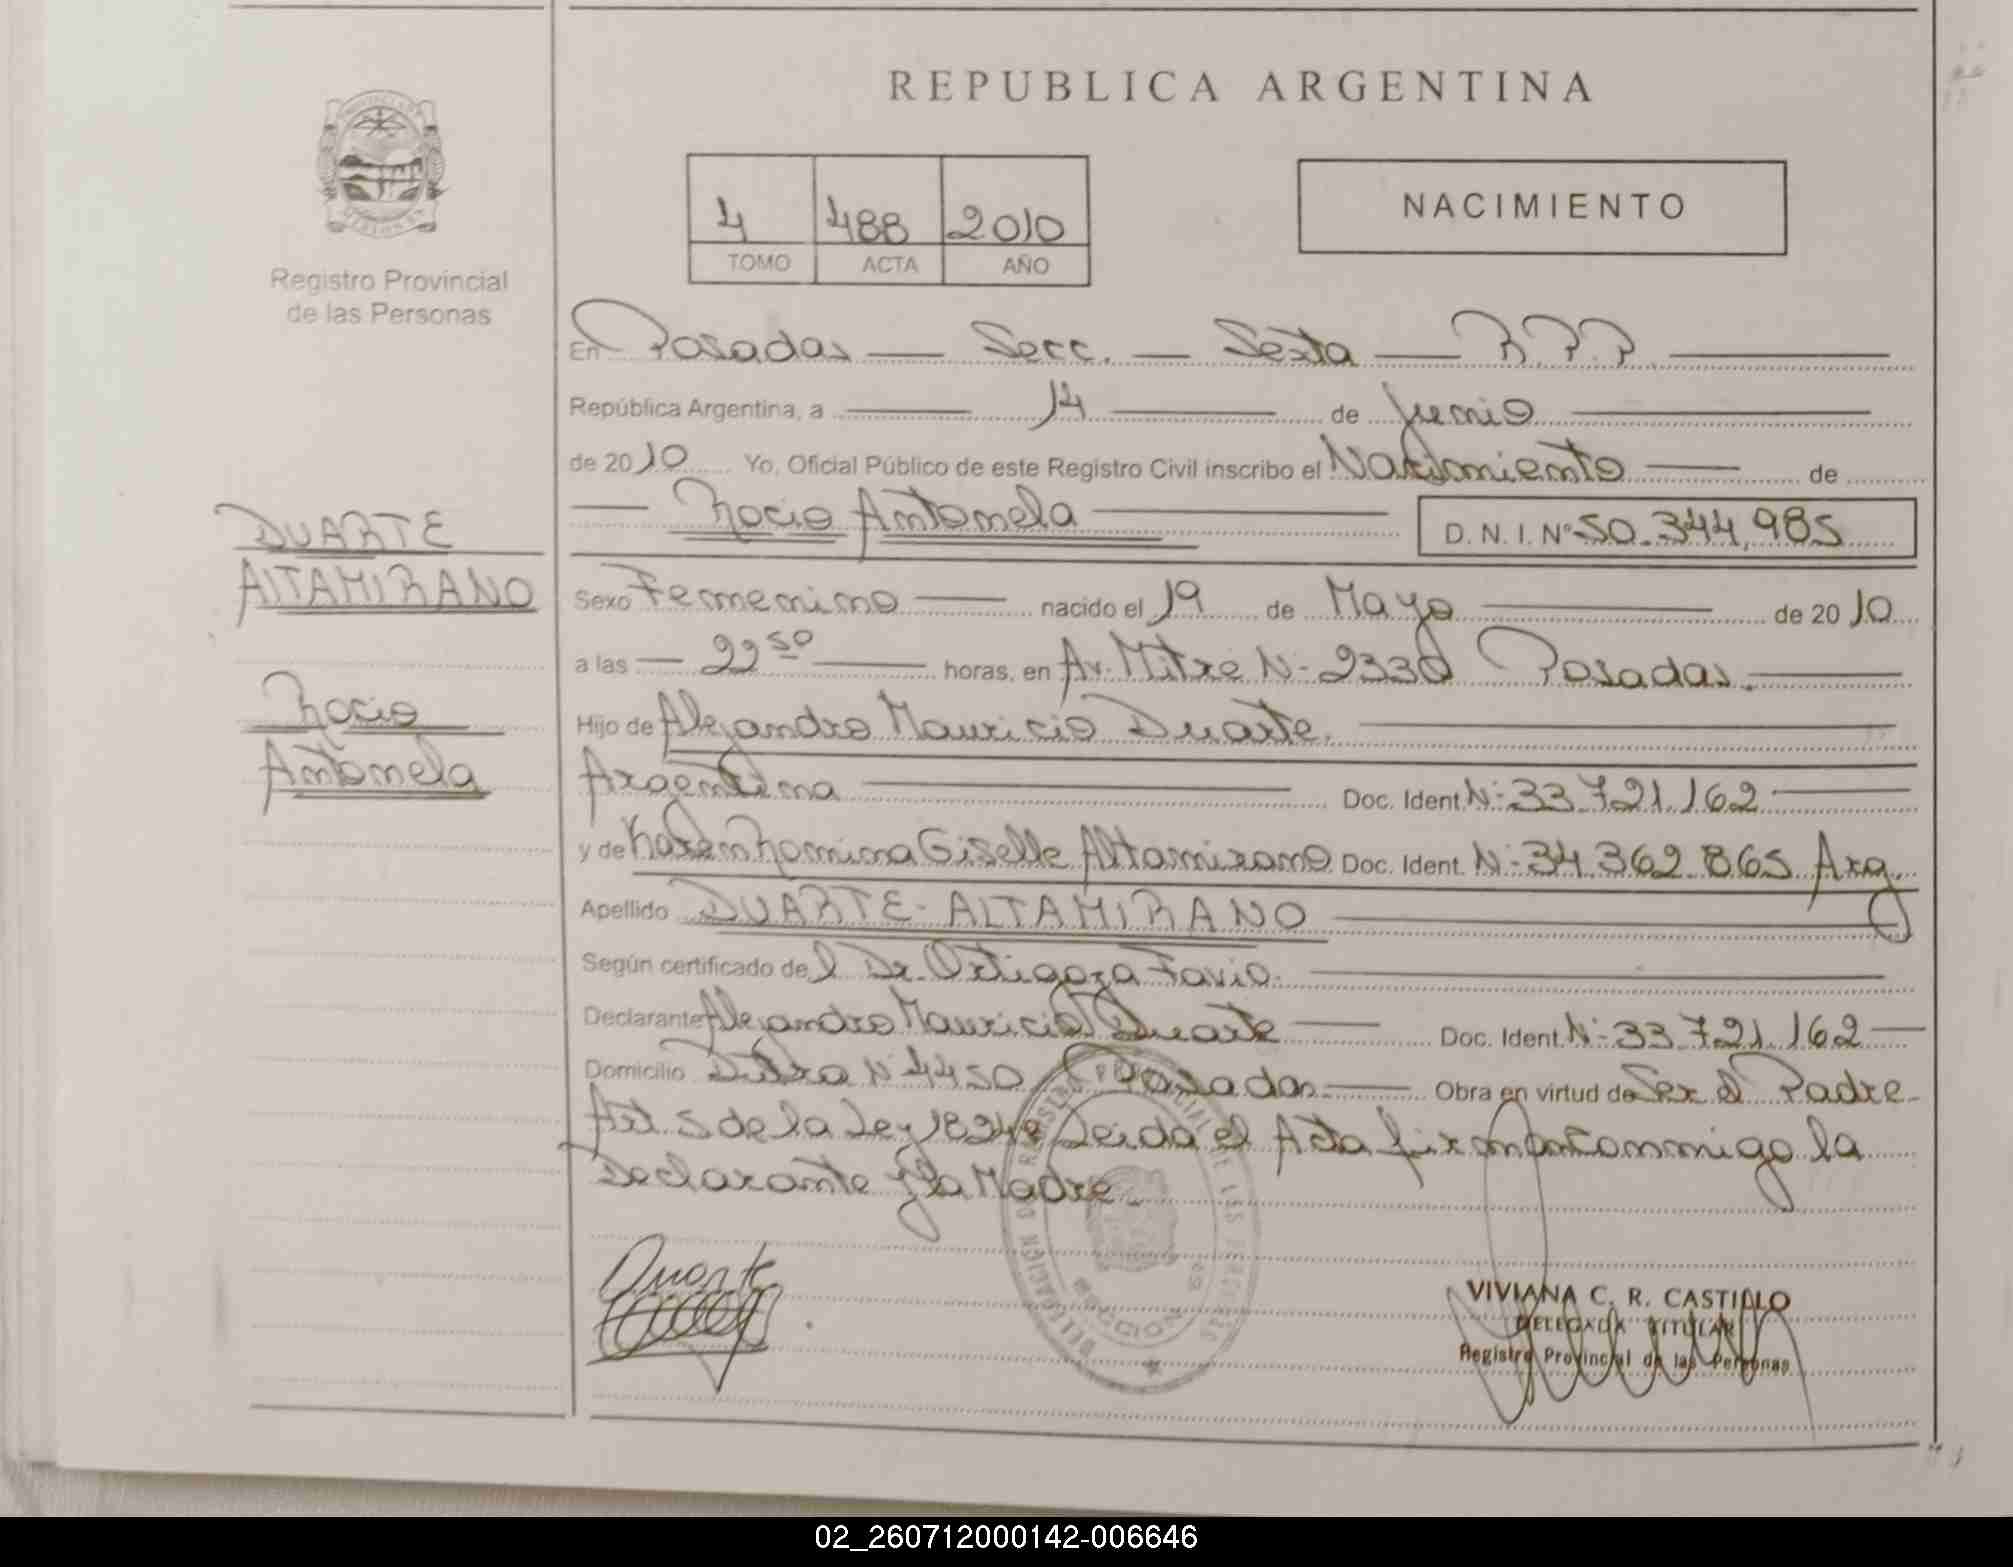 REPUBLICA ARGENTINA
NACIMIENTO
4 488 2010
TOMO ACTA AÑO
Registro Provincial
de las Personas
En Posadas — Secc. — Sexta — R.P.P.
República Argentina, a 14 de Junio
de 2010 Yo, Oficial Público de este Registro Civil inscribo el Nacimiento de
Rocio Antonela D. N. I. Nº 50.344.985
DUARTE
ALTAMIRANO
Rocio
Antonela
Sexo Femenino nacido el 19 de Mayo de 2010
a las 22 50 horas, en Av. Mitre N- 2330 Posadas.
Hijo de Alejandro Mauricio Duarte.
Argentina Doc. Ident. N: 33.721.162
y de Karen Romina Giselle Altamirano Doc. Ident. N: 34.362.865 Arg.
Apellido DUARTE - ALTAMIRANO
Según certificado del Dr. Ortigoza Favio.
Declarante Alejandro Mauricio Duarte Doc. Ident. N: 33.721.162
Domicilio N 4450 Posadas Obra en virtud de Ser el Padre
Art. 5 de la Ley 18248 Leida el Acta firman conmigo la
Declarante y la Madre.
Duarte
VIVIANA C. R. CASTILLO
DELEGADA TITULAR
Registro Provincial de las Personas
02_260712000142-006646